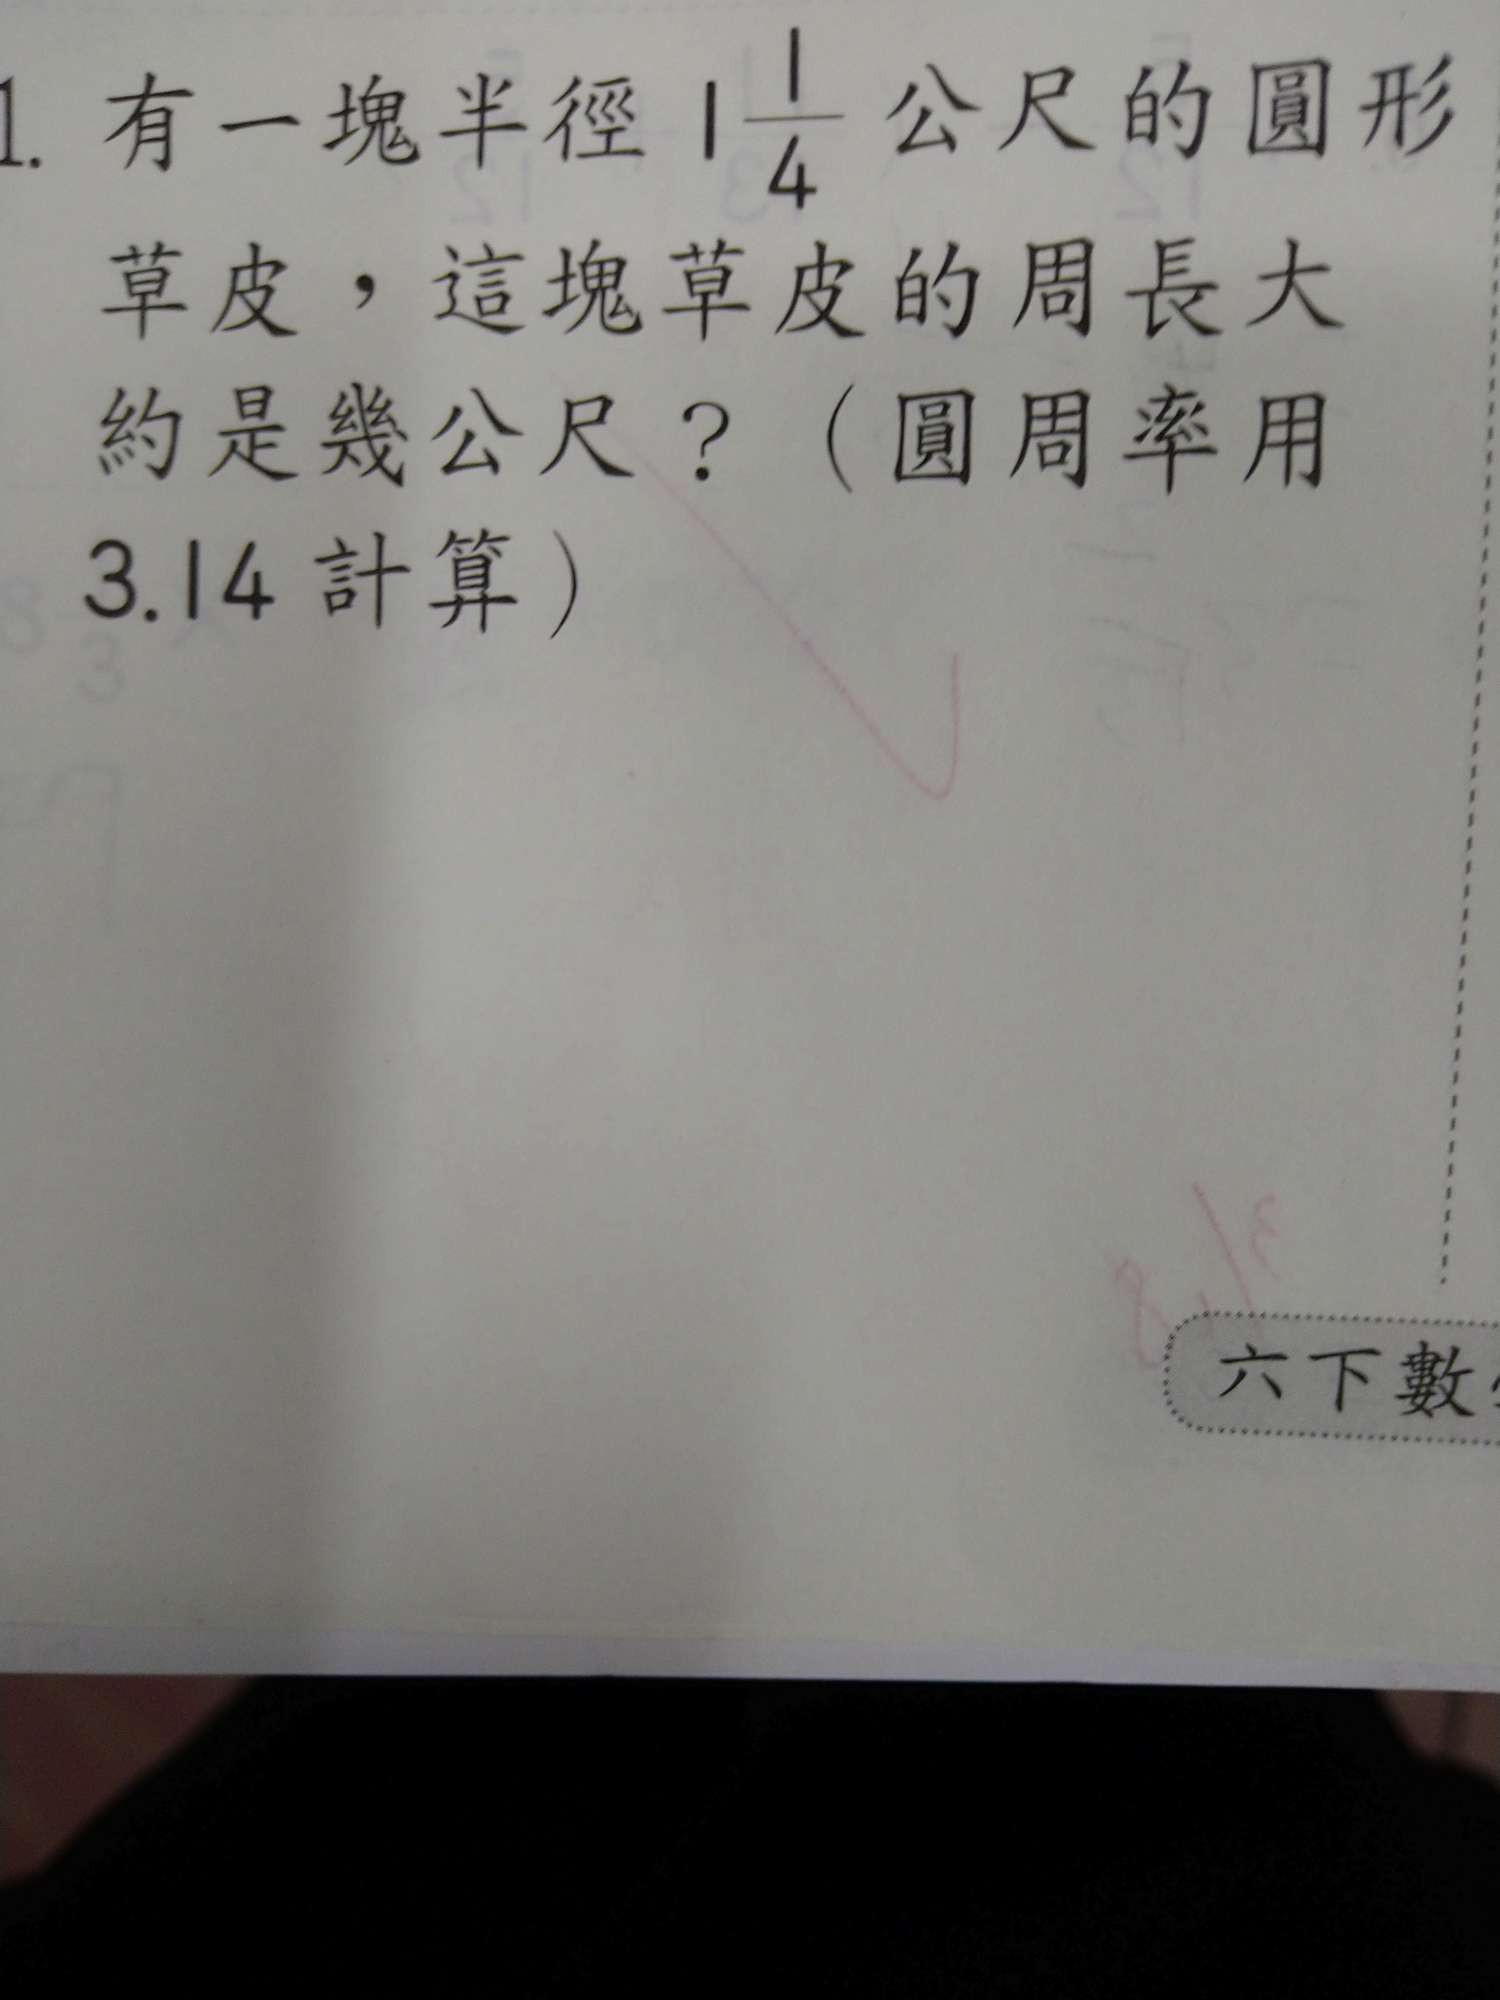 1. 有一塊半徑 1 1/4 公尺的圓形
草皮，這塊草皮的周長大
約是幾公尺？（圓周率用
3.14 計算）
六下數